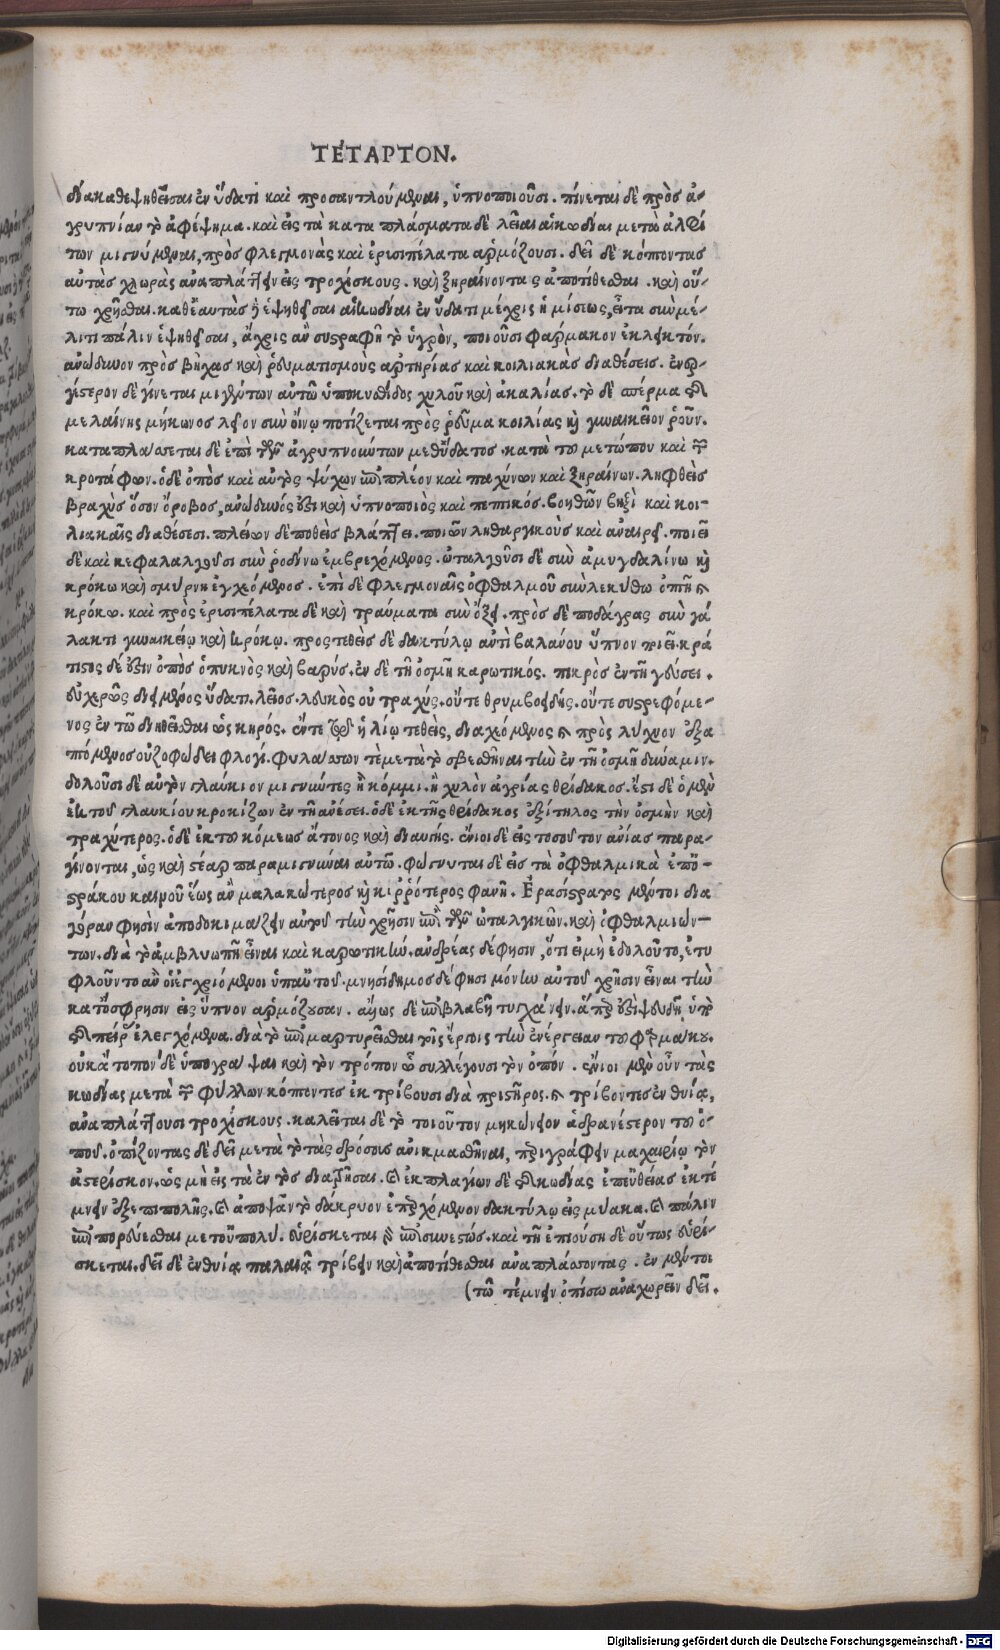 ΤΕΤΑΡΤΟΝ.
διακαθεψηθεῖσαι ἐν ὕδατι καὶ προσαντλούμεναι, ὑπνοποιοῦσι. πίνεται δὲ πρὸς ἀ-
γρυπνίαν τὸ ἀφέψημα. καὶ εἰς τὰ καταπλάσματα δὲ λεῖαι αἱ κωδίαι μετὰ ἀλφί
των μιγνύμεναι, πρὸς φλεγμονὰς καὶ ἐρυσιπέλατα ἁρμόζουσι. δεῖ δὲ κόπτοντας
αὐτὰς χλωρὰς ἀναπλάττειν εἰς τροχίσκους. καὶ ξηραίνοντας ἀποτίθεσθαι. καὶ οὕ-
τω χρῆσθαι. καθ' ἑαυτὰς ἢ ἑψηθεῖσαι αἱ κωδίαι ἐν ὕδατι μέχρις ἡμίσεως, εἶτα σὺν μέ-
λιτι πάλιν ἑψηθεῖσαι, ἄχρις ἂν συστραφῇ τὸ ὑγρὸν, ποιοῦσι φάρμακον ἐκλεκτόν.
ἀνώδυνον πρὸς βῆχας καὶ ῥευματισμοὺς ἀρτηρίας καὶ κοιλιακὰς διαθέσεις. ἐνερ-
γέστερον δὲ γίνεται μιγέντων αὐτῶ ὑποκυθίδος χυλοῦ καὶ ἀκακίας. τὸ δὲ σπέρμα τῆς
μελαίνης μήκωνος λεῖον σὺν οἴνῳ ποτίζεται πρὸς ῥεῦμα κοιλίας καὶ γυναικεῖον ῥοῦν.
καταπλάσσεται δὲ ἐπὶ τῶν ἀγρυπνούντων μεθ' ὕδατος. κατὰ τοῦ μετώπου καὶ τῶν
κροτάφων. ὁ δὲ ὀπὸς καὶ αὐτὸς ψύχων ἐπιπλέον καὶ παχύνων καὶ ξηραίνων. ληφθεὶς
βραχὺς ὅσον ὄροβος, ἀνώδυνός ἐστι καὶ ὑπνοποιὸς καὶ πεπτικός. βοηθῶν βηξὶ καὶ κοι-
λιακαῖς διαθέσεσι. πλείων δὲ ποθεὶς βλάπτει. ποιῶν ληθαργικοὺς καὶ ἀναιρεῖ. ποιεῖ
δὲ καὶ κεφαλαλγοῦσι σὺν ῥοδίνῳ ἐμβρεχόμενος. ὠταλγοῦσι δὲ σὺν ἀμυγδαλίνω καὶ
κρόκω καὶ σμύρνη ἐγχεόμενος. ἐπὶ δὲ φλεγμοναῖς ὀφθαλμοῦ σὺν λεκύθω ὀπτῆ καὶ
κρόκω. καὶ πρὸς ἐρυσιπέλατα δὲ καὶ τραύματα σὺν ὄξει. πρὸς δὲ ποδάγρας σὺν γά
λακτι γυναικείῳ καὶ κρόκῳ. προςτεθεὶς δὲ δακτύλῳ ἀντὶ βαλάνου ὕπνον ποιεῖ. κρά
τιστος δέ ἐστιν ὀπὸς ὁ πυκνὸς καὶ βαρύς. ἐν δὲ τῇ ὀσμῇ καρωτικός. πικρὸς ἐν τῇ γεύσει.
εὐχερῶς διέμενος ὕδατι. λεῖος. λευκὸς οὐ τραχύς. οὔτε θρυμβοειδής. οὔτε συστρεφόμε-
νος ἐν τῶ διηθεῖσθαι ὡς κηρός. ἔν τε τῶ ἡλίῳ τεθεὶς, διαχεόμενος καὶ πρὸς λύχνον ἐξα
πτόμενος οὐ ζοφώδει φλογί. φυλάσσων τὲ μετὰ τὸ σβεσθῆναι τὴν ἐν τῇ ὀσμῇ δύναμιν.
δολοῦσι δὲ αὐτὸν γλαύκιον μιγνύντες ἢ κόμμι. ἢ χυλὸν ἀγρίας θρίδακος. ἔστι δὲ ὁ μὲν
ἐκ τοῦ γλαυκίου κροκίζων ἐν τῇ ἀνέσει. ὁ δὲ ἐκ τῆς θρίδακος ἐξίτηλος τὴν ὀσμὴν καὶ
τραχύτερος. ὁ δὲ ἐκ τοῦ κόμεως ἄτονος καὶ διαυγής. ἔνιοι δὲ εἰς τοσοῦτον ἀνίας παρα-
γίνονται, ὡς καὶ στέαρ παραμιγνύναι αὐτῶ. φώγνυται δὲ εἰς τὰ ὀφθαλμικὰ ἐπ' ὀ-
στράκου καινοῦ ἕως ἂν μαλακώτερος καὶ κιρρότερος φανῇ. Ἐρασίστρατος μέντοι δια
γόραν φησὶν ἀποδοκιμάζειν αὐτοῦ τὴν χρῆσιν ἐπὶ τῶν ὠταλγικῶν. καὶ ὀφθαλμιών-
των. διὰ τὸ ἀμβλυωπῆ εἶναι καὶ καρωτικήν. ἀνδρέας δέ φησιν, ὅτι εἰ μὴ ἐδολοῦτο, ἐτυ
φλοῦντο ἂν οἱ ἐγχριόμενοι ὑπ' αὐτοῦ. μνησίδημος δέ φησι μόνην αὐτοῦ χρῆσιν εἶναι τὴν
κατ' ὄσφρησιν εἰς ὕπνον ἁρμόζουσαν. ἄλλως δὲ ἐπιβλαβῆ τυγχάνειν. ἅπερ ἐστὶ ψευδῆ ὑπὸ
τῆς πείρας ἐλεγχόμενα. διὰ τὸ ἐπιμαρτυρεῖσθαι τοῖς ἔργοις τὴν ἐνέργειαν τοῦ φαρμάκου.
οὐκ ἄτοπον δὲ ὑπογράψαι καὶ τὸν τρόπον ὧ συλλέγουσι τὸν ὀπόν. ἔνιοι μὲν οὖν τὰς
κωδίας μετὰ τῶν φύλλων κόπτοντες ἐκτρίβουσι διὰ πριστῆρος. καὶ τρίβοντες ἐν θυίᾳ,
ἀναπλάττουσι τροχίσκους. καλεῖται δὲ τὸ τοιοῦτον μηκώνειον ἀδρανέστερον τοῦ ὀ-
ποῦ. ὀπίζοντας δὲ δεῖ μετὰ τὸ τὰς δρόσους ἀνικμασθῆναι, περιγράφειν μαχαιρίῳ τὸν
ἀστερίσκον. ὡς μὴ εἰς τὰ ἐντὸς διατρῆσαι. καὶ ἐκ πλαγίων δὲ τὰς κωδίας ἐπ' εὐθείας ἐκτέ
μνειν ἐξ ἐπιπολῆς. καὶ ἀποψᾶν τὸ δάκρυον ἐπερχόμενον δακτύλῳ εἰς μύακα. καὶ πάλιν
ἐπιπορεύεσθαι μετ' οὐ πολύ. εὑρίσκεται γὰρ ἐπισυνεστώς. καὶ τῇ ἐπιούσῃ δὲ οὕτως εὑρί-
σκεται. δεῖ δὲ ἐν θυίᾳ παλαιᾷ τρίβειν καὶ ἀποτίθεσθαι ἀναπλάσσοντας. ἐν μέντοι
(τῶ τέμνειν ὀπίσω ἀναχωρεῖν δεῖ.
Digitalisierung gefördert durch die Deutsche Forschungsgemeinschaft - DFG